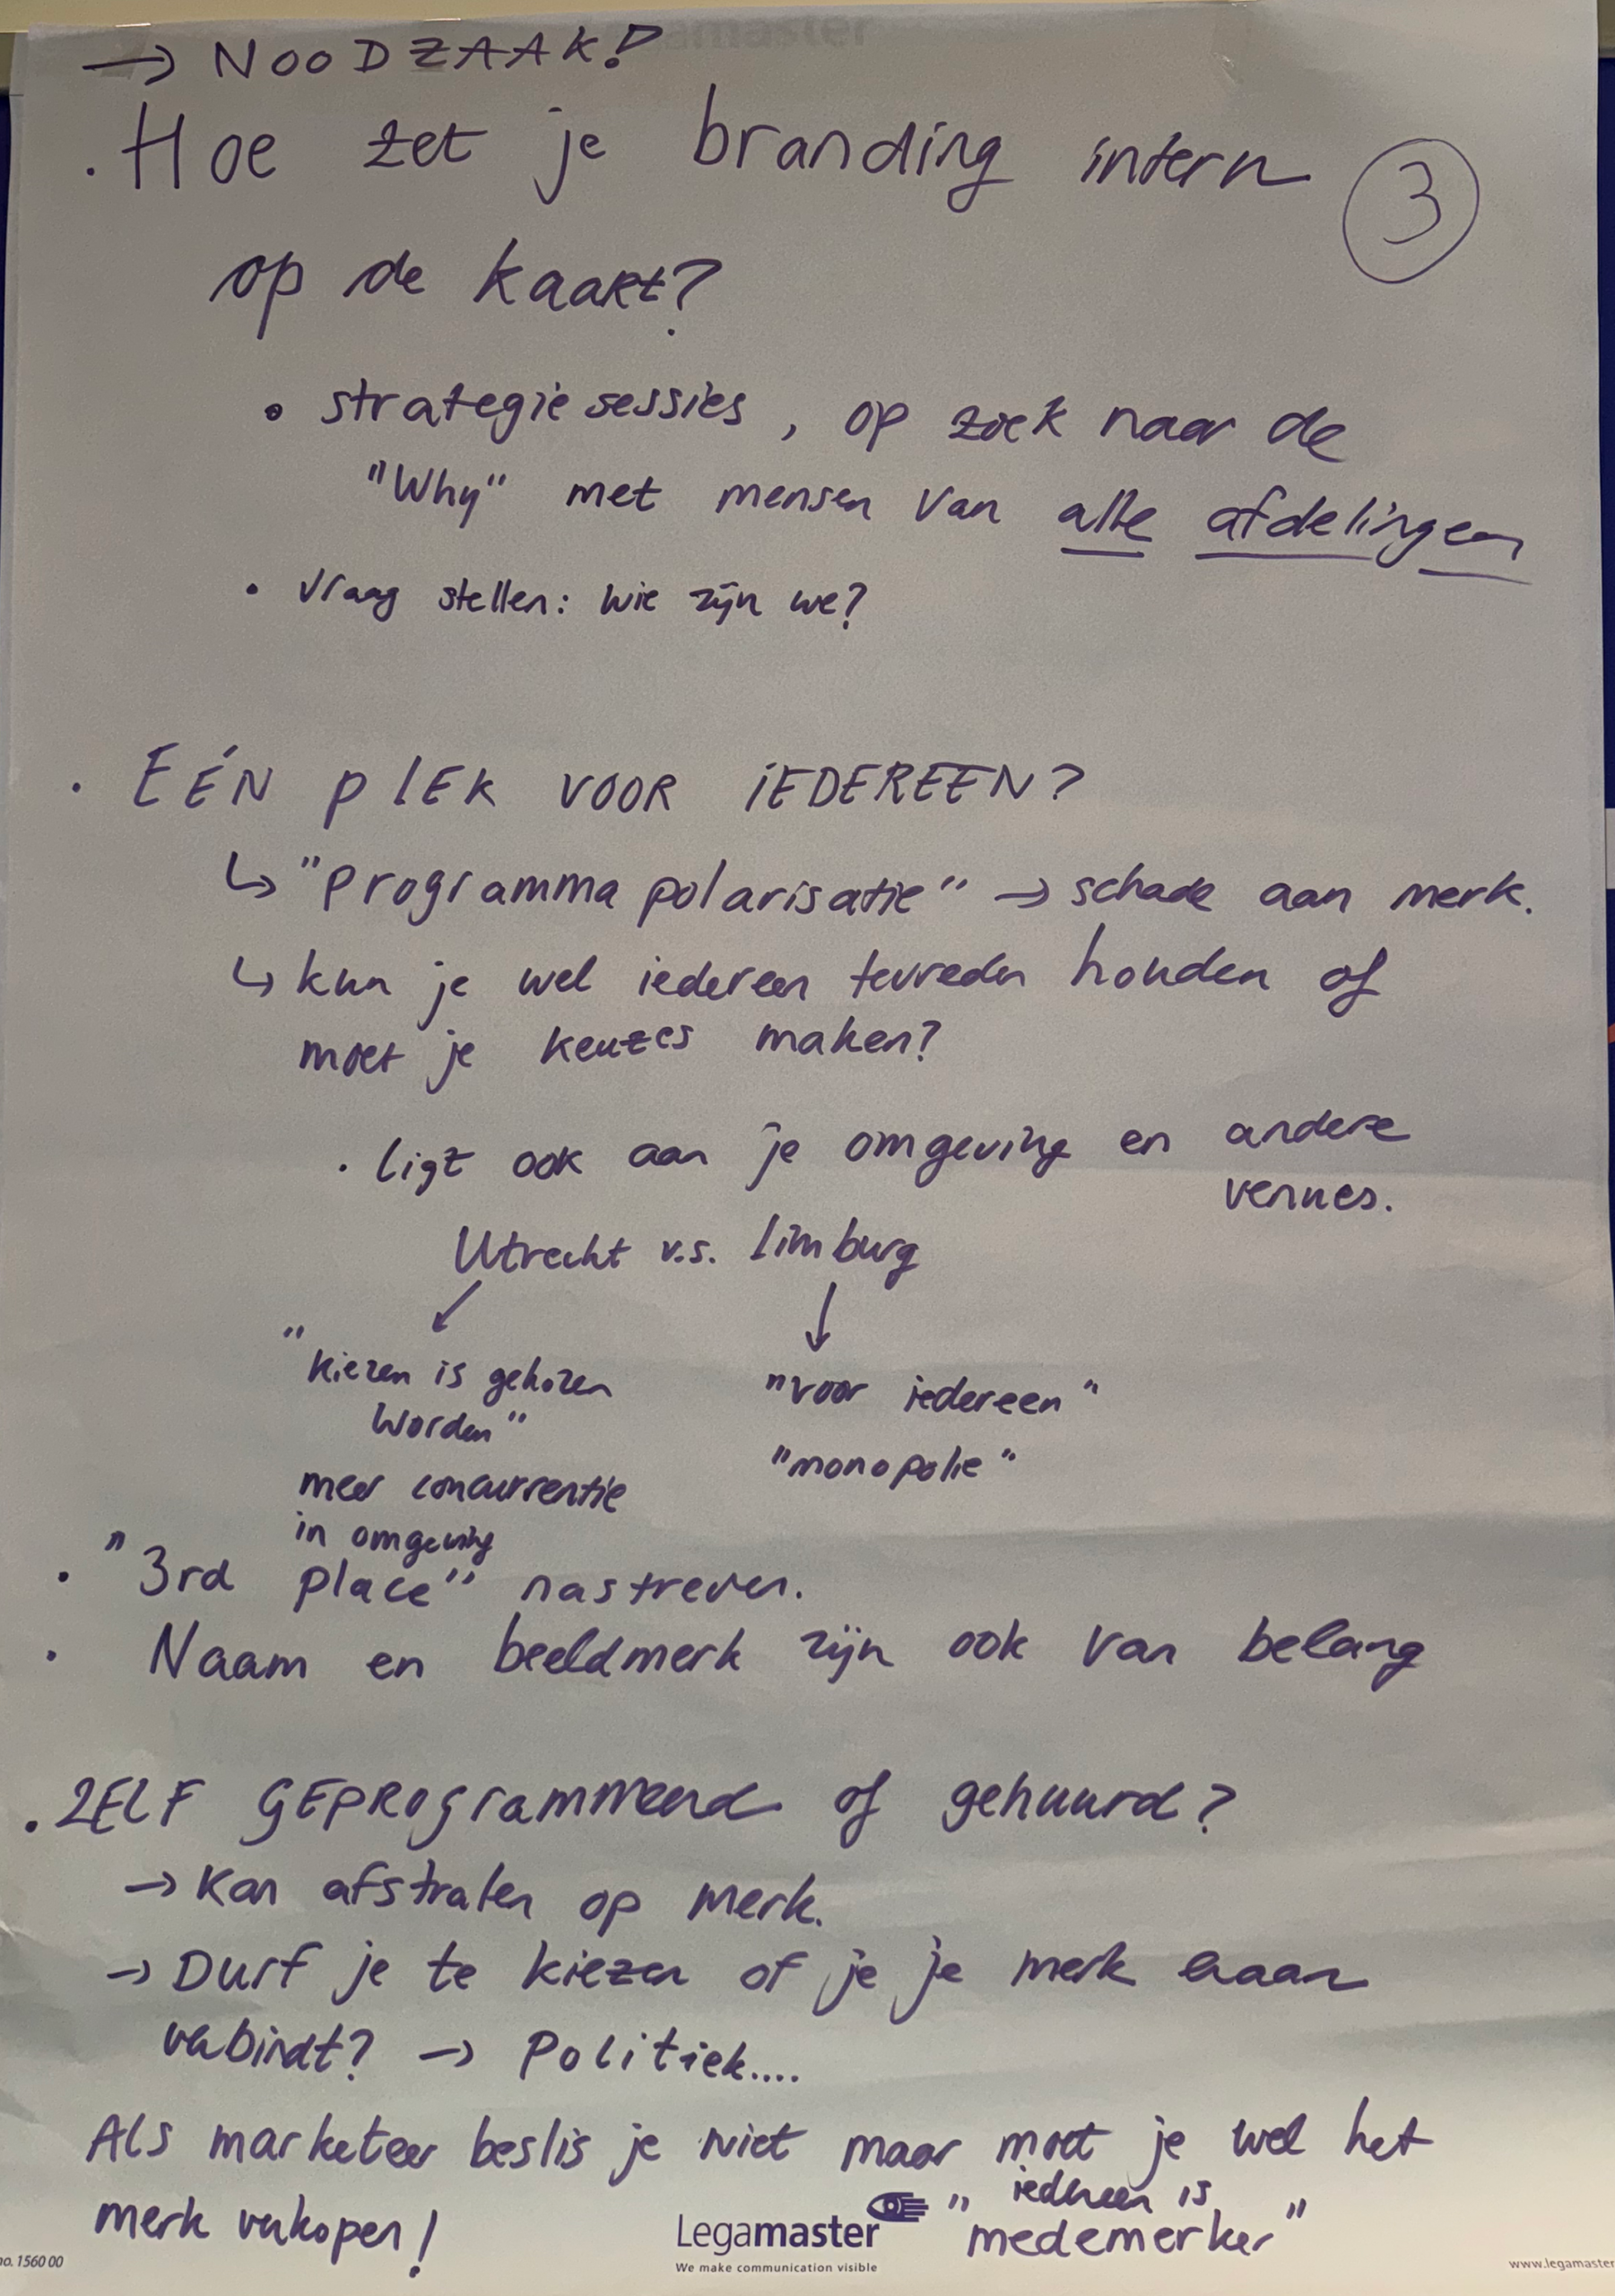 → NOODZAAK!
. Hoe zet je branding intern
3
op de kaart?
• strategiesessies, op zoek naar de
"Why" met mensen van alle afdelingen
• Vraag stellen: wie zijn we?
• EÉN PLEK VOOR IEDEREEN?
↳ "Programma polarisatie" → schade aan merk.
↳ kun je wel iedereen tevreden houden of
moet je keuzes maken?
• ligt ook aan je omgeving en andere
venues.
Utrecht v.s. Limburg
↙ ↓
"kiezen is gekozen
worden"
"voor iedereen"
"monopolie"
meer concurrentie
in omgeving
• "3rd place" nastreven.
• Naam en beeldmerk zijn ook van belang
. ZELF GEPROGrammeerd of gehuurd?
→ Kan afstralen op merk.
→ Durf je te kiezen of je je merk eraan
verbindt? → Politiek....
Als marketeer beslis je niet maar moet je wel het
merk verkopen!
"iedereen is
medemerker"
Legamaster
We make communication visible
no. 1560 00
www.legamaster